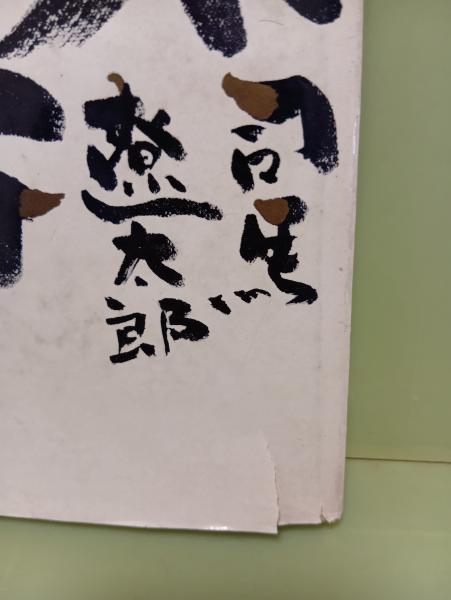 司馬
遼太郎